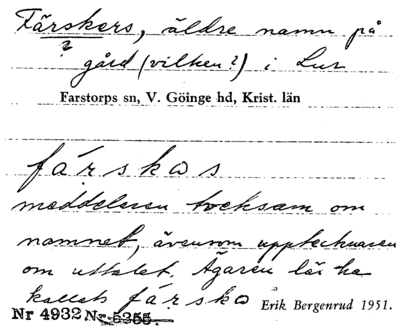 Färskers, äldre namn på
?
gård (vilken?) i Lur
Farstorps sn, V. Göinge hd, Krist. län
fárskas
meddelaren tveksam om
namnet, ävensom upptecknaren
om uttalet. Ägaren lär ha
kallats fárska Erik Bergenrud 1951.
Nr 4932 Nr 5355.